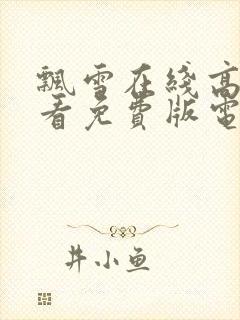 飄雪在綫高
看免費版電
井小鱼